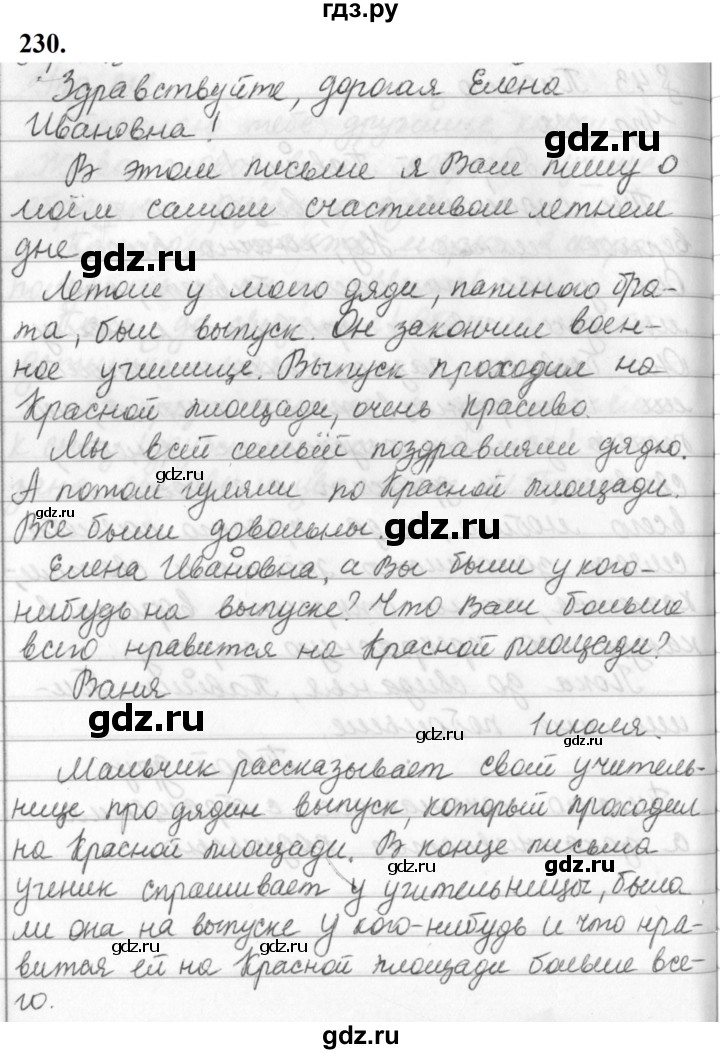 гдз.ру
230.
Здравствуйте, дорогая Елена
Ивановна!
gdz.ru
В этом письме я Вам пишу о
моём самом счастливом летнем
дне.
gdz.ru
Летом у моего дяди, папиного бра-
та, был выпуск. Он закончил воен-
ное училище. Выпуск проходил на
Красной площади, очень красиво.
Мы всей семьёй поздравляли дядю.
gdz.ru
gdz.ru
А потом гуляли по Красной площади.
Все были довольны.
gdz.ru
Елена Ивановна, а Вы были у кого-
нибудь на выпуске? Что Вам больше
всего нравится на Красной площади?
Ваня
gdz.ru
gdz.ru
1 июля.
Мальчик рассказывает своей учитель-
gdz.ru
нице про дядин выпуск, который проходил
на Красной площади. В конце письма
gdz.ru
ученик спрашивает у учительницы, была
ли она на выпуске у кого-нибудь и что нра-
gdz.ru
gdz.ru
вится ей на Красной площади больше все-
го.
gdz.ru